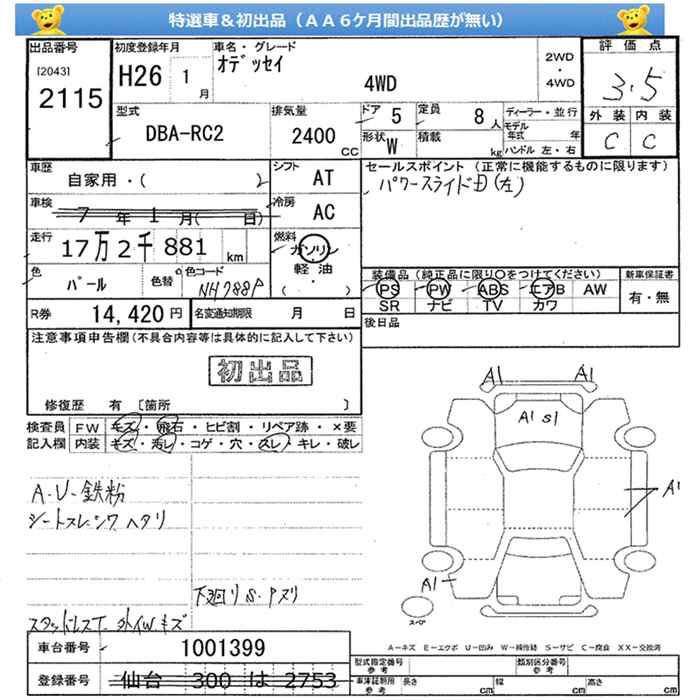 特選車＆初出品（ＡＡ６ケ月間出品歴が無い）
出品番号 初度登録年月 車名・グレード 評価点
[2043] H26 1月 オデッセイ 2WD・4WD 3.5
2115 4WD
外装 内装
C C
型式 排気量 ドア 5 定員 8人 ディーラー・並行
DBA-RC2 2400 CC 形状 W 積載 kg モデル年式 年
ハンドル 左・右
車歴 シフト セールスポイント（正常に機能するものに限ります）
自家用・( ) AT パワースライドD(左)
車検 7年1月(日) 冷房 AC
走行 17万2千881 km 燃料 ガソリン
軽油
( ・ )
色 パール 色替 色コード NH788P
装備品（純正品に限り○をつけてください） 新車保証書
PS PW ABS エアB AW 有・無
SR ナビ TV カワ
R券 14,420円 名変通知期限 月 日
後日品
注意事項申告欄(不具合内容等は具体的に記入して下さい)
初出品
修復歴 有 〔箇所 〕
検査員 FW キズ・飛石・ヒビ割・リペア跡・×要
記入欄 内装 キズ・汚レ・コゲ・穴・スレ・キレ・破レ
A1 A1
A1 S1
A1
A1
A-U-鉄粉
ヘタリ
下廻りS・Pズリ
スペア
A＝キズ E＝エクボ U＝凹み W＝補修跡 S＝サビ C＝腐食 XX＝交換済
車台番号 1001399
登録番号 仙台 300 は 2753
型式指定番号 参考 類別区分番号 参考
車庫証明用 参考 長さ cm 幅 cm 高さ cm